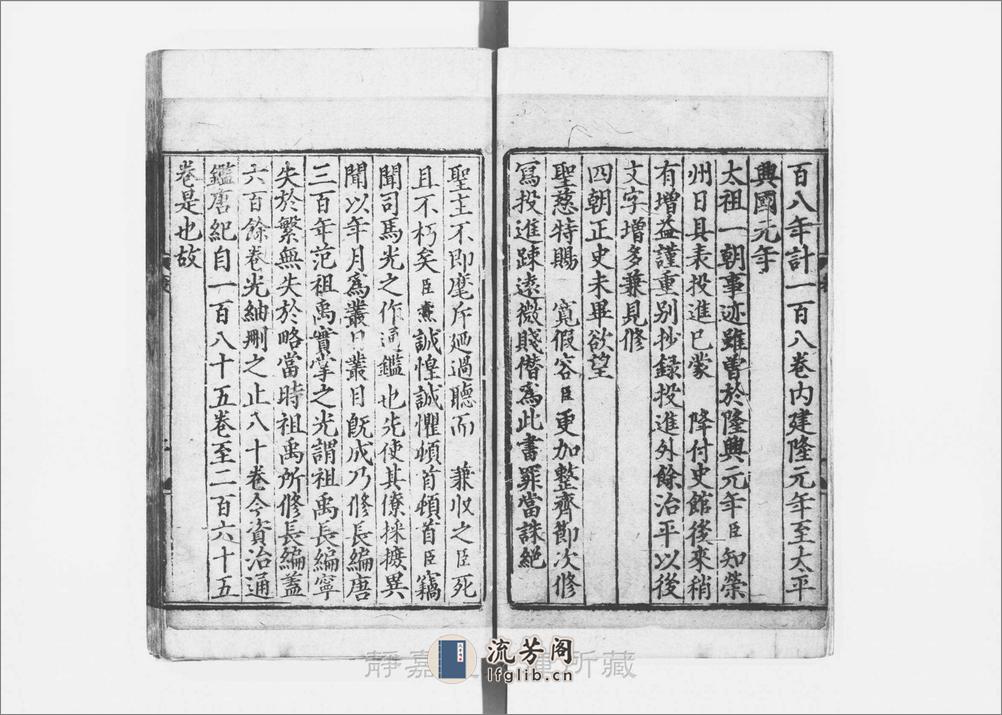 百八年計一百八卷內建隆元年至太平
興國元年
太祖一朝事迹雖曾於隆興元年臣知榮
州日具表投進已蒙　降付史館後來稍
有增益謹重別抄錄投進外餘治平以後
文字增多兼見修
四朝正史未畢欲望
聖慈特賜　寬假容臣更加整齊節次修
寫投進踈遠微賤僭為此書罪當誅絕
聖主不即麾斥廼過聽而　兼收之臣死
且不朽矣臣燾誠惶誠懼頓首頓首臣竊
聞司馬光之作通鑑也先使其僚採摭異
聞以年月為叢目叢目既成乃修長編唐
三百年范祖禹實掌之光謂祖禹長編寧
失於繁無失於略當時祖禹所修長編蓋
六百餘卷光紬刪之止八十卷今資治通
鑑唐紀自一百八十五卷至二百六十五
卷是也故
流芳阁
lfglib.cn
靜嘉 所藏